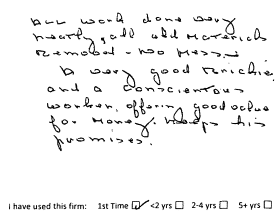 All work done very
neatly, all old materials
removed - no mess.
A very good tradesman
and a conscientous
worker, offering good value
for money, keeps his
promises.
I have used this firm: 1st Time ☑ <2 yrs ☐ 2-4 yrs ☐ 5+ yrs ☐